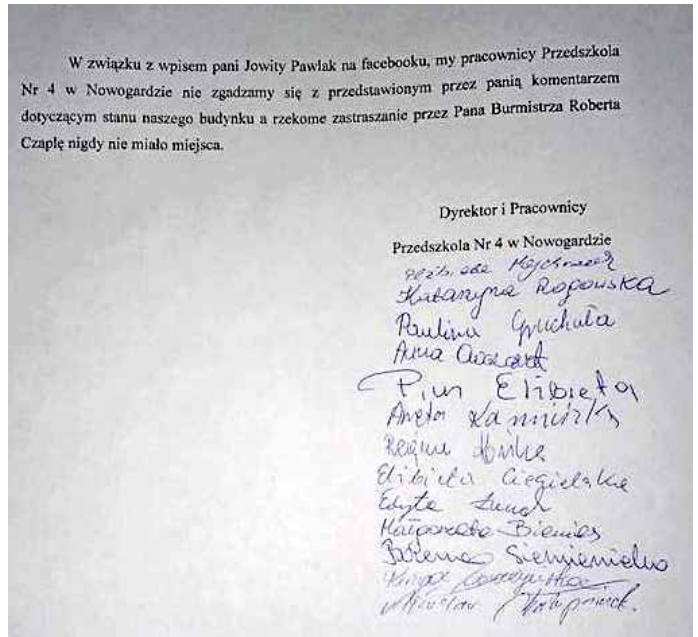 W związku z wpisem pani Jowity Pawlak na facebooku, my pracownicy Przedszkola
Nr 4 w Nowogardzie nie zgadzamy się z przedstawionym przez panią komentarzem
dotyczącym stanu naszego budynku a rzekome zastraszanie przez Pana Burmistrza Roberta
Czaplę nigdy nie miało miejsca.
Dyrektor i Pracownicy
Przedszkola Nr 4 w Nowogardzie
Katarzyna Rogowska
Paulina Gruchała
Anna
Piun Elżbieta
Aneta Kamińska
Regina
Elżbieta Ciegielska
Edyta
Małgorzata Bienias
Bożena Siemieniako
Kinga
Mirosław